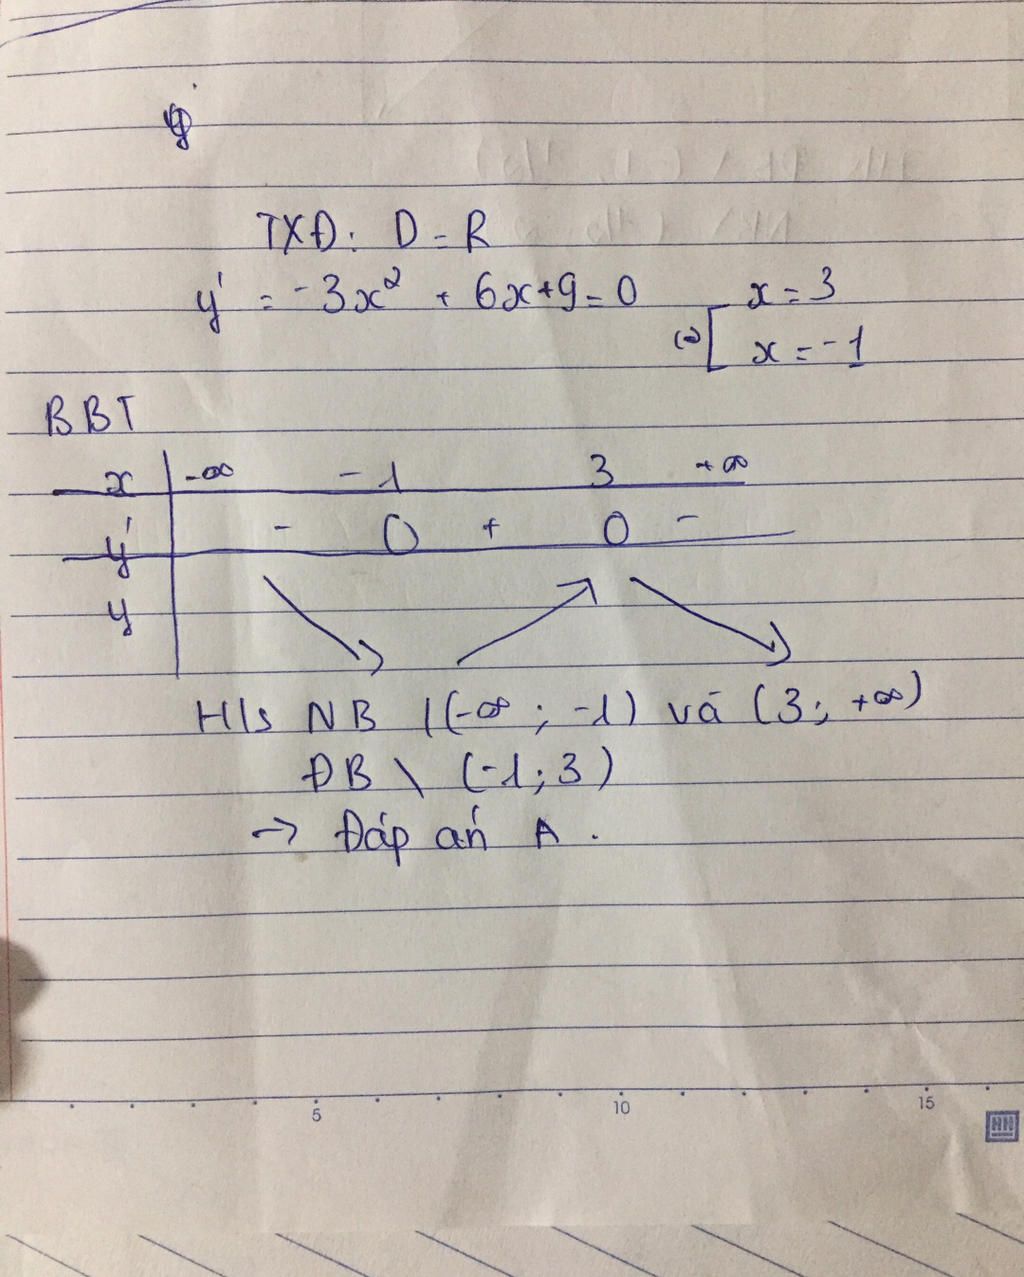 TXĐ: D = R
y' = -3x² + 6x + 9 = 0 (=) [ x = 3
x = -1
BBT
x -∞ -1 3 +∞
y' - 0 + 0 -
y
H/s NB \ (-∞ ; -1) và (3; +∞)
ĐB \ (-1; 3)
→ Đáp án A.
5 10 15
HH